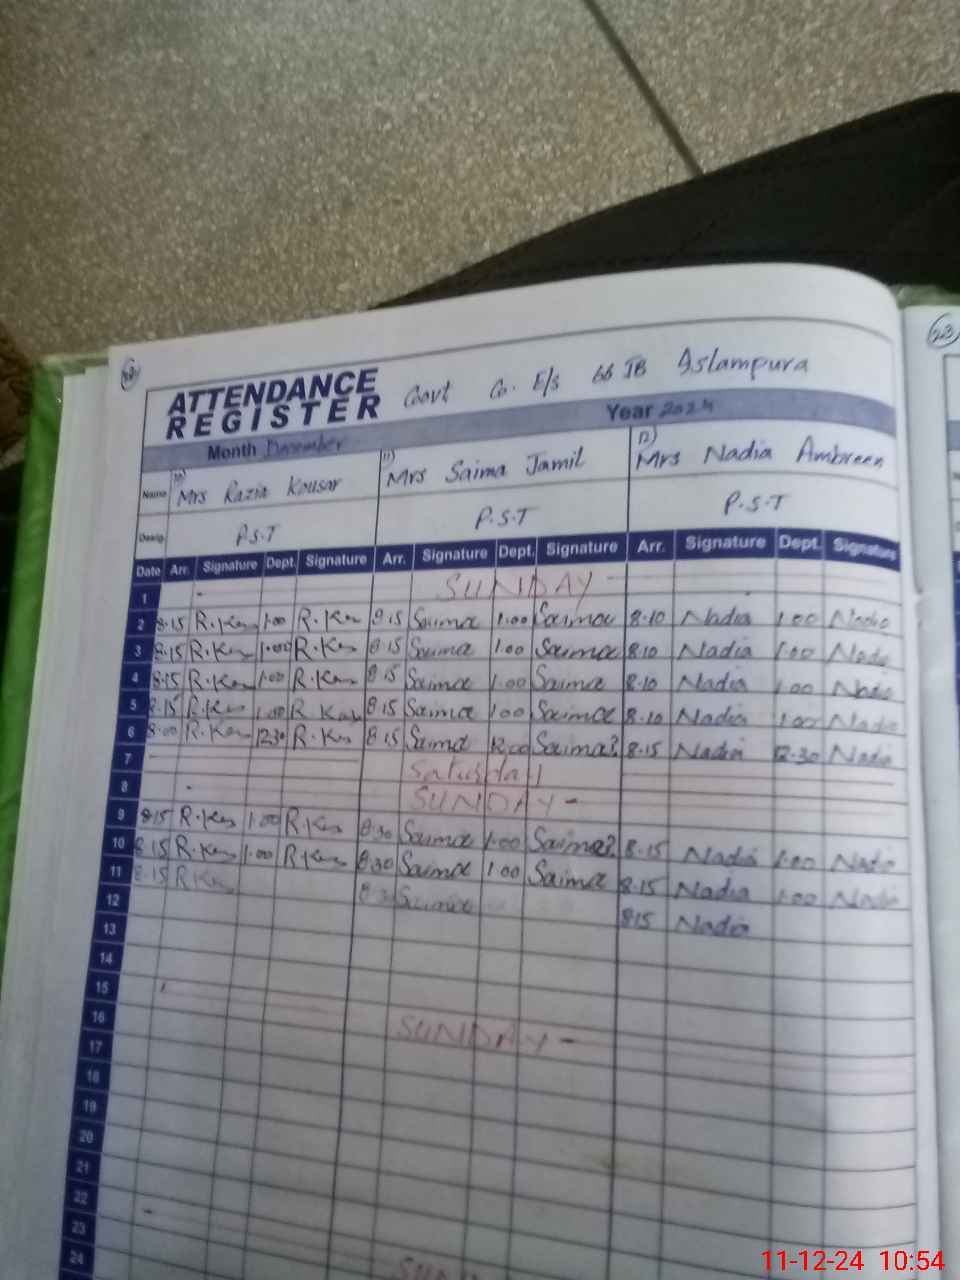 22
23
ATTENDANCE
REGISTER
Govt Co. E/s 66 JB Islampura
Month December Year 2024
Name 10) Mrs Razia Kousar 11) Mrs Saima Jamil 12) Mrs Nadia Ambreen
Desig. P.S.T P.S.T P.S.T
Date Arr. Signature Dept. Signature Arr. Signature Dept. Signature Arr. Signature Dept. Signature
1 SUNDAY
2 8.15 R.Kau 1.00 R.Kau 8.15 Saima 1.00 Saima 8.10 Nadia 1.00 Nadia
3 8.15 R.Kau 1.00 R.Kau 8.15 Saima 1.00 Saima 8.10 Nadia 1.00 Nadia
4 8.15 R.Kau 1.00 R.Kau 8.15 Saima 1.00 Saima 8.10 Nadia 1.00 Nadia
5 8.15 R.Kau 1.00 R.Kau 8.15 Saima 1.00 Saima 8.10 Nadia 1.00 Nadia
6 8.00 R.Kau 12.30 R.Kau 8.15 Saima 12.00 Saima 8.15 Nadia 12.30 Nadia
7 Saturday
8 SUNDAY -
9 8.15 R.Kau 1.00 R.Kau 8.30 Saima 1.00 Saima 8.15 Nadia 1.00 Nadia
10 8.15 R.Kau 1.00 R.Kau 8.30 Saima 1.00 Saima 8.15 Nadia 1.00 Nadia
11 8.15 R.Kau 8.30 Saima 8.15 Nadia
12
13
14
15 SUNDAY -
16
17
18
19
20
21
22
23
24
11-12-24 10:54